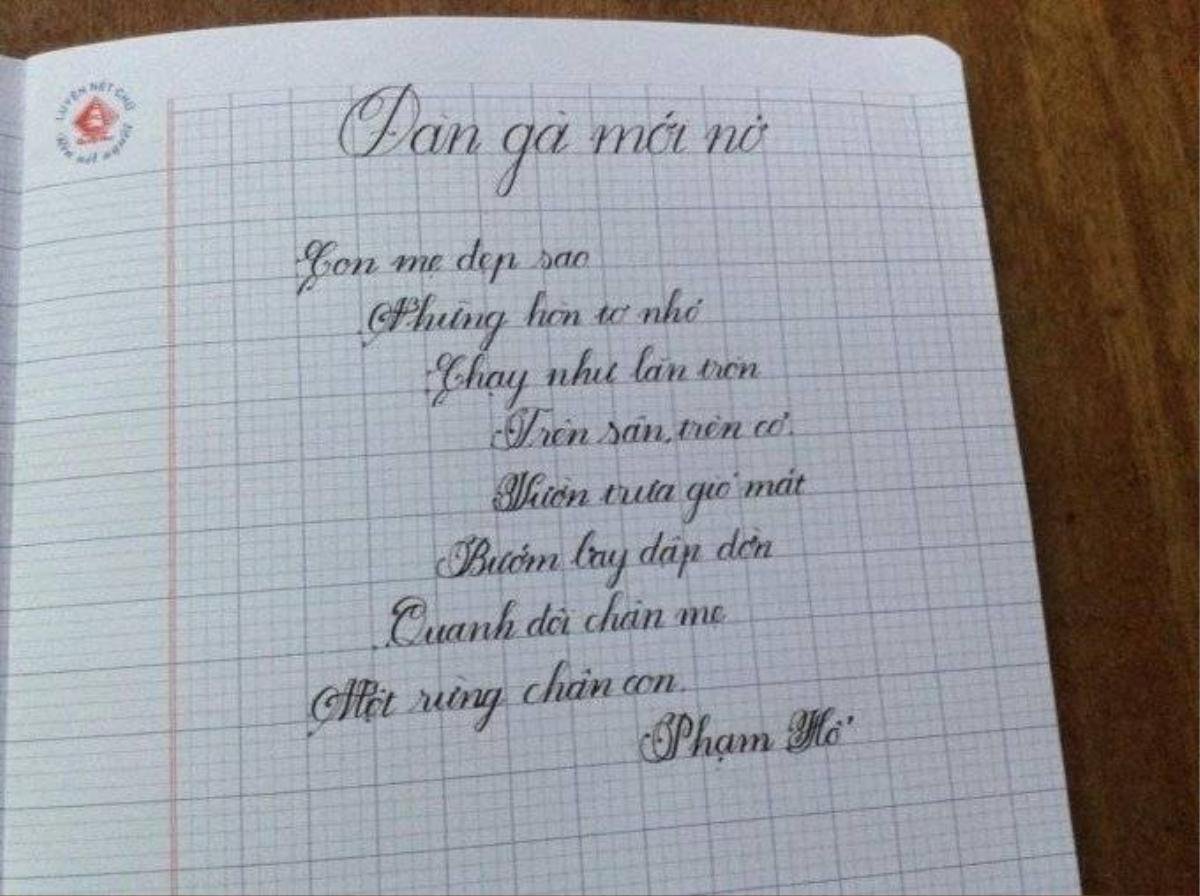 LUYỆN NÉT CHỮ
rèn nết người
Đàn gà mới nở
Con mẹ đẹp sao
Những hòn tơ nhỏ
Chạy như lăn tròn
Trên sân, trên cỏ.
Vườn trưa gió mát
Bướm bay dập dờn
Quanh đôi chân mẹ
Một rừng chân con.
Phạm Hổ